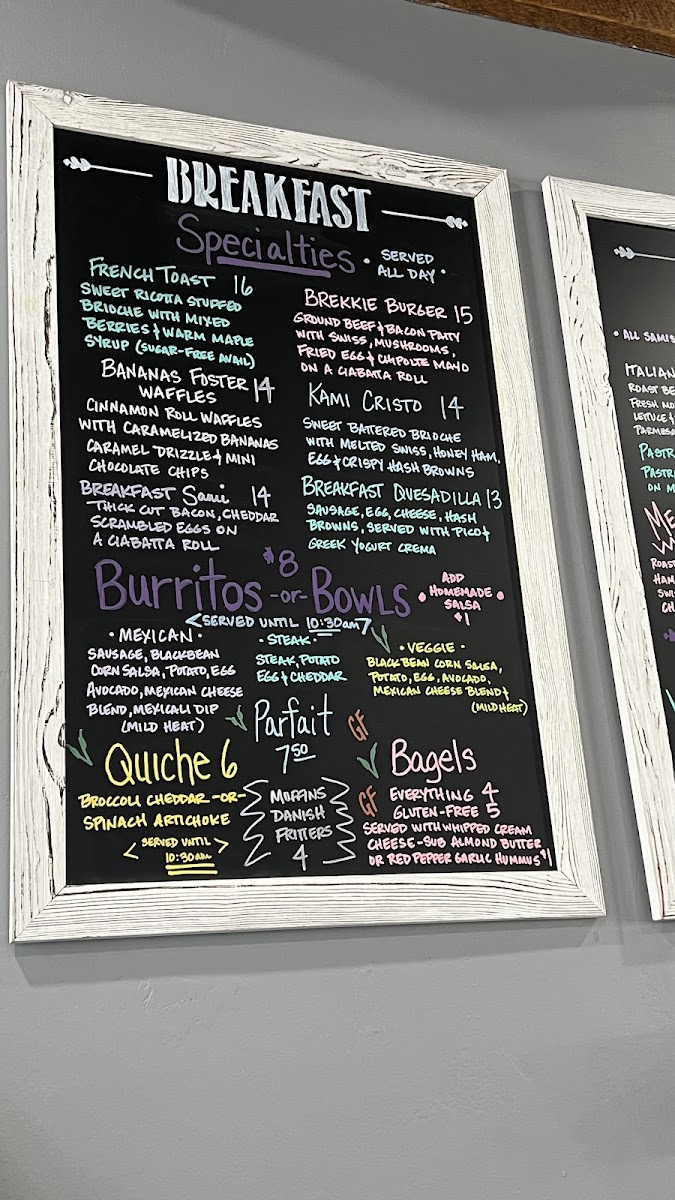 BREAKFAST
Specialties
• SERVED
ALL DAY •
FRENCH TOAST 16
SWEET RICOTTA STUFFED
BRIOCHE WITH MIXED
BERRIES & WARM MAPLE
SYRUP (SUGAR-FREE AVAIL)
BANANAS FOSTER 14
WAFFLES
CINNAMON ROLL WAFFLES
WITH CARAMELIZED BANANAS
CARAMEL DRIZZLE & MINI
CHOCOLATE CHIPS
BREAKFAST Sami 14
THICK CUT BACON, CHEDDAR
SCRAMBLED EGGS ON
A CIABATTA ROLL
BREKKIE BURGER 15
GROUND BEEF & BACON PATTY
WITH SWISS, MUSHROOMS,
FRIED EGG & CHIPOLTE MAYO
ON A CIABATTA ROLL
KAMI CRISTO 14
SWEET BATTERED BRIOCHE
WITH MELTED SWISS, HONEY HAM,
EGG & CRISPY HASH BROWNS
BREAKFAST QUESADILLA 13
SAUSAGE, EGG, CHEESE, HASH
BROWNS, SERVED WITH PICO &
GREEK YOGURT CREMA
$8
Burritos -or- BOWLS
<SERVED UNTIL 10:30am>
ADD
• HOMEMADE •
SALSA
$1
• MEXICAN •
SAUSAGE, BLACKBEAN
CORN SALSA, POTATO, EGG
AVOCADO, MEXICAN CHEESE
BLEND, MEXICALI DIP
(MILD HEAT)
• STEAK •
STEAK, POTATO
EGG & CHEDDAR
• VEGGIE •
BLACK BEAN CORN SALSA,
POTATO, EGG, AVOCADO,
MEXICAN CHEESE BLEND &
(MILD HEAT)
Parfait GF
7.50
Quiche 6
BROCCOLI CHEDDAR -OR-
SPINACH ARTICHOKE
< SERVED UNTIL >
10:30am
MUFFINS
DANISH
FRITTERS
4
Bagels
EVERYTHING 4
GF GLUTEN-FREE 5
SERVED WITH WHIPPED CREAM
CHEESE-SUB ALMOND BUTTER
OR RED PEPPER GARLIC HUMMUS $1
• ALL SAMIS
ITALIAN
ROAST BE
FRESH MO
LETTUCE &
PARMESA
PASTR
PASTR
ON M
ME
ROAS
HAM
SWI
CH